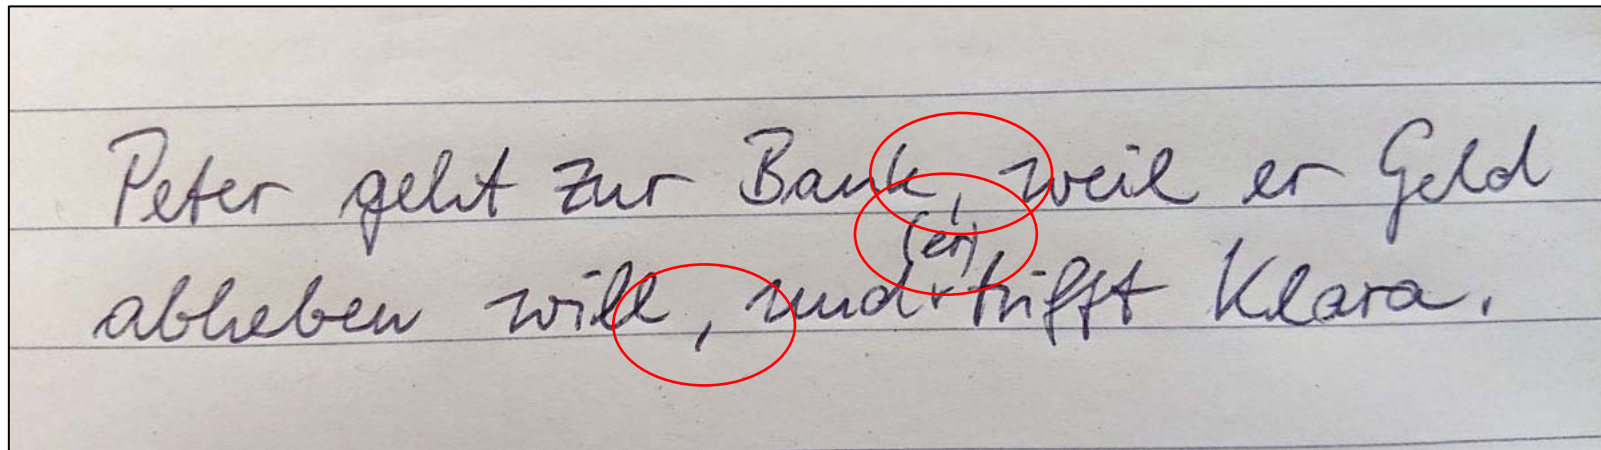 Peter geht zur Bank, weil er Geld
(er)
abheben will, und trifft Klara.